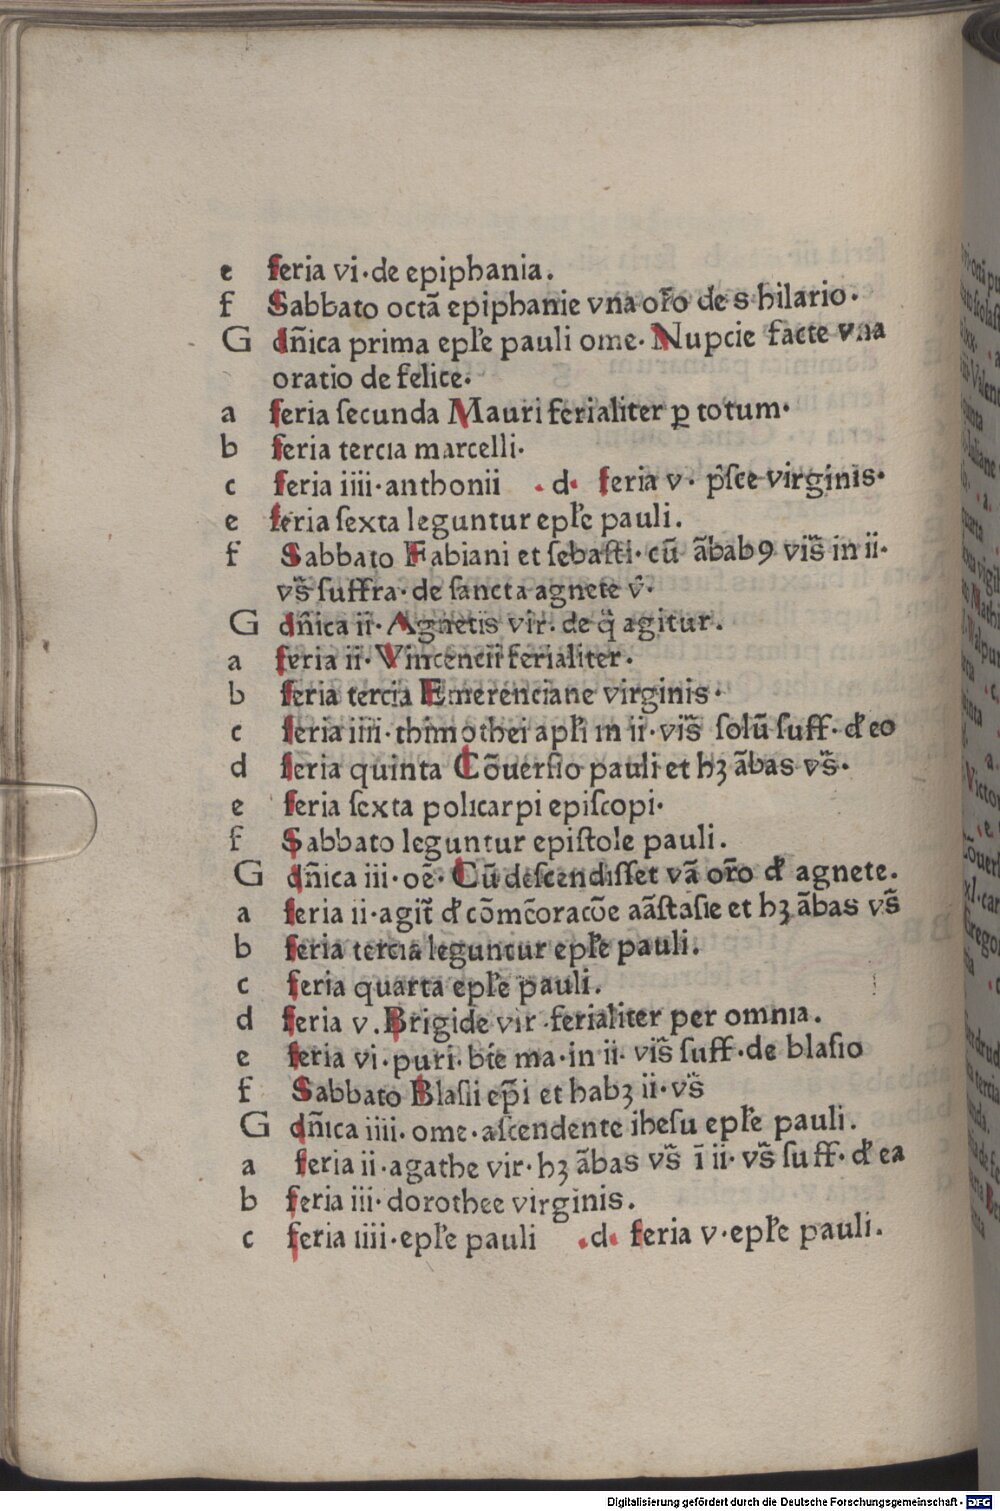 e feria vi·de epiphania.
f Sabbato octā epiphanie vna or̄o de s hilario·
G dn̄ica prima epl̄e pauli ome· Nupcie facte vna
oratio de felice·
a feria ſecunda Mauri ferialiter ꝑ totum·
b feria tercia marcelli·
c feria iiii·anthonii ·d· feria v· p̄ſce virginis·
e feria ſexta leguntur epl̄e pauli.
f Sabbato Fabiani et ſebaſti· cū āhab9 vis̄ in ii·
vs̄ ſuffra·de ſancta agnete v̄·
G dn̄ica ii·Agnetis vir·de q̄ agitur.
a feria ii·Vincencii ferialiter.
b feria tercia Emerenciane virginis·
c feria iiii·thimothei apl̄i in ii·vis̄ ſolū ſuff·dͤ eo
d feria quinta Cōuerſio pauli et hꝫ ābas vs̄·
e feria ſexta policarpi epiſcopi·
f Sabbato leguntur epiſtole pauli.
G dn̄ica iii·oē·Cū deſcendiſſet vā or̄o dͤ agnete.
a feria ii·agit̄ dͤ cōmēoracōe aāſtaſie et hꝫ ābas vs̄
b feria tercia leguntur epl̄e pauli.
c feria quarta epl̄e pauli.
d feria v.Brigide vir·ferialiter per omnia.
e feria vi·puri·btē ma·in ii·vis̄ ſuff·de blaſio
f Sabbato Blaſii ep̄i et habꝫ ii·vs̄
G dn̄ica iiii·ome·aſcendente iheſu epl̄e pauli.
a feria ii·agathe vir·hꝫ ābas vs̄ ī ii·vs̄ ſuff·dͤ ea
b feria iii·dorothee virginis.
c feria iiii·epl̄e pauli ·d· feria v·epl̄e pauli.
Digitalisierung gefördert durch die Deutsche Forschungsgemeinschaft - DFG